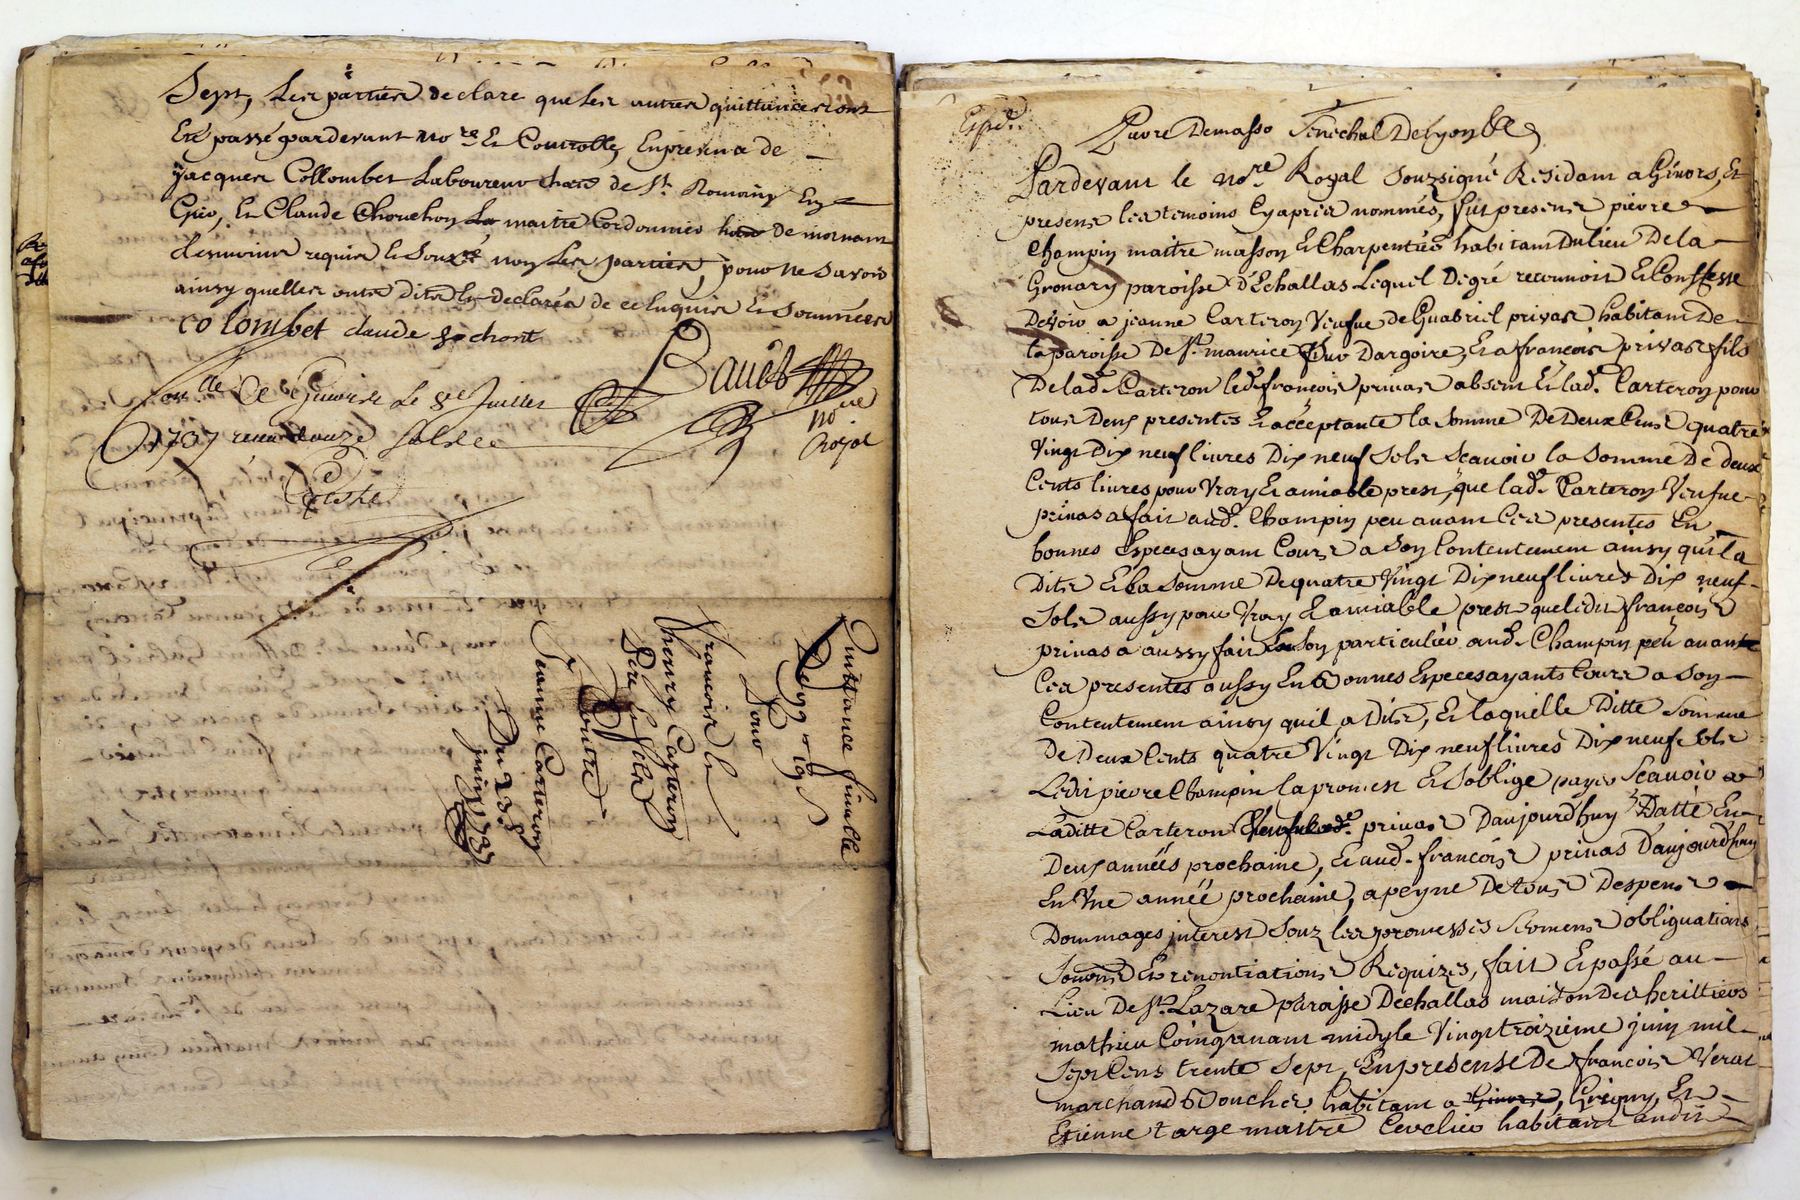 Sept, Les parties declare que les autres quittances ont
Eté passé pardevant no.re Et Controlle, En presence de
Jacques Collombet Laboureur de St. Romain En
Gier, Et Claude Chonchon maitre Cordonnier de mornant
temoins requis Et Souz.né non Les parties, pour ne Savoir
ainsy quelles ont dit Et declaréa de ce Enquis Et Sommées
colombet claude chont
Baudt
no.re
Royal
Con.llé A Givors Le 8e Juillet
1737 receu douze Sols
Coste
Quittance finalle
De 99 lt 19 s
Pour
Francois Et
Thierry Carteron
Pere Et fils
Contre
Jeanne Carteron
Du 23e
juin 1737
Expé.
Pierre Demasso Senéchal De Lyon &a
Pardevant le no.re Royal Souzsigné Residant a Givors, Et
presens les temoins Cy apres nommés, fut present pierre
Champin maitre masson Et Charpentier habitant Du lieu De la
Gronary paroisse D'Echallas Lequel De gré reconnoit Et Confesse
Devoir a jeanne Carteron Veufue de Guabriel privas habitant De
la paroisse De St. maurice Sur Dargoire, Et a francois privas fils
De lad.e Carteron led. francois privas absent Et lad.e Carteron pour
tous Deux presentes Et acceptante la Somme De Deux Cens quatre
Vingt Dix neuf livres Dix neuf Sols Scauoir la Somme De deux
Cents livres pour Vray Et amiable prest, que lad.e Carteron Veufue
privas a fait aud. Champin peu auant Ces presentes En
bonnes Especes ayant Cours a Son Contentement ainsy qu'il a
Dit Et la Somme De quatre Vingt Dix neuf livres Dix neuf
Sols aussy pour Vray Et amiable prest que ledit francois
privas a aussy fait En Son particulier aud. Champin peu auant
Ces presentes aussy En Bonnes Especes ayants Cours a Son
Contentement ainsy qu'il a Dit, Et laquelle Ditte Somme
De Deux Cents quatre Vingt Dix neuf livres Dix neuf Sols
Ledit pierre Champin la promest Et Soblige payer Scauoir a
Laditte Carteron Veufue privas Daujourd'huy Datté En
Deux années prochaine, Et aud. francois privas Daujourd'huy
En Vne année prochaine, a peyne De tous Despens
Dommages jnterest Souz les promesses Serment obliguations
Soumis Et renontiations Requizes, fait Et passé au
Lieu De St. Lazare paroisse Dechallas maison Des herittiers
mathieu Coing auant midy le Vingt troizieme juin mil
Sept Cens trente Sept, En presense De francois Verat
marchand Boucher habitant a Givors, Grigny, Et
Etienne targe maitre habitant audit